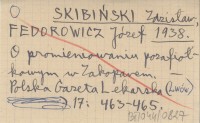 O SKIBIŃSKI Zdzisław,
FEDOROWICZ Józef 1938.
O promieniowaniu pozafioł-
kowym w Zakopanem. —
Polska Gazeta Lekarska (Lwów)
17: 463-465.